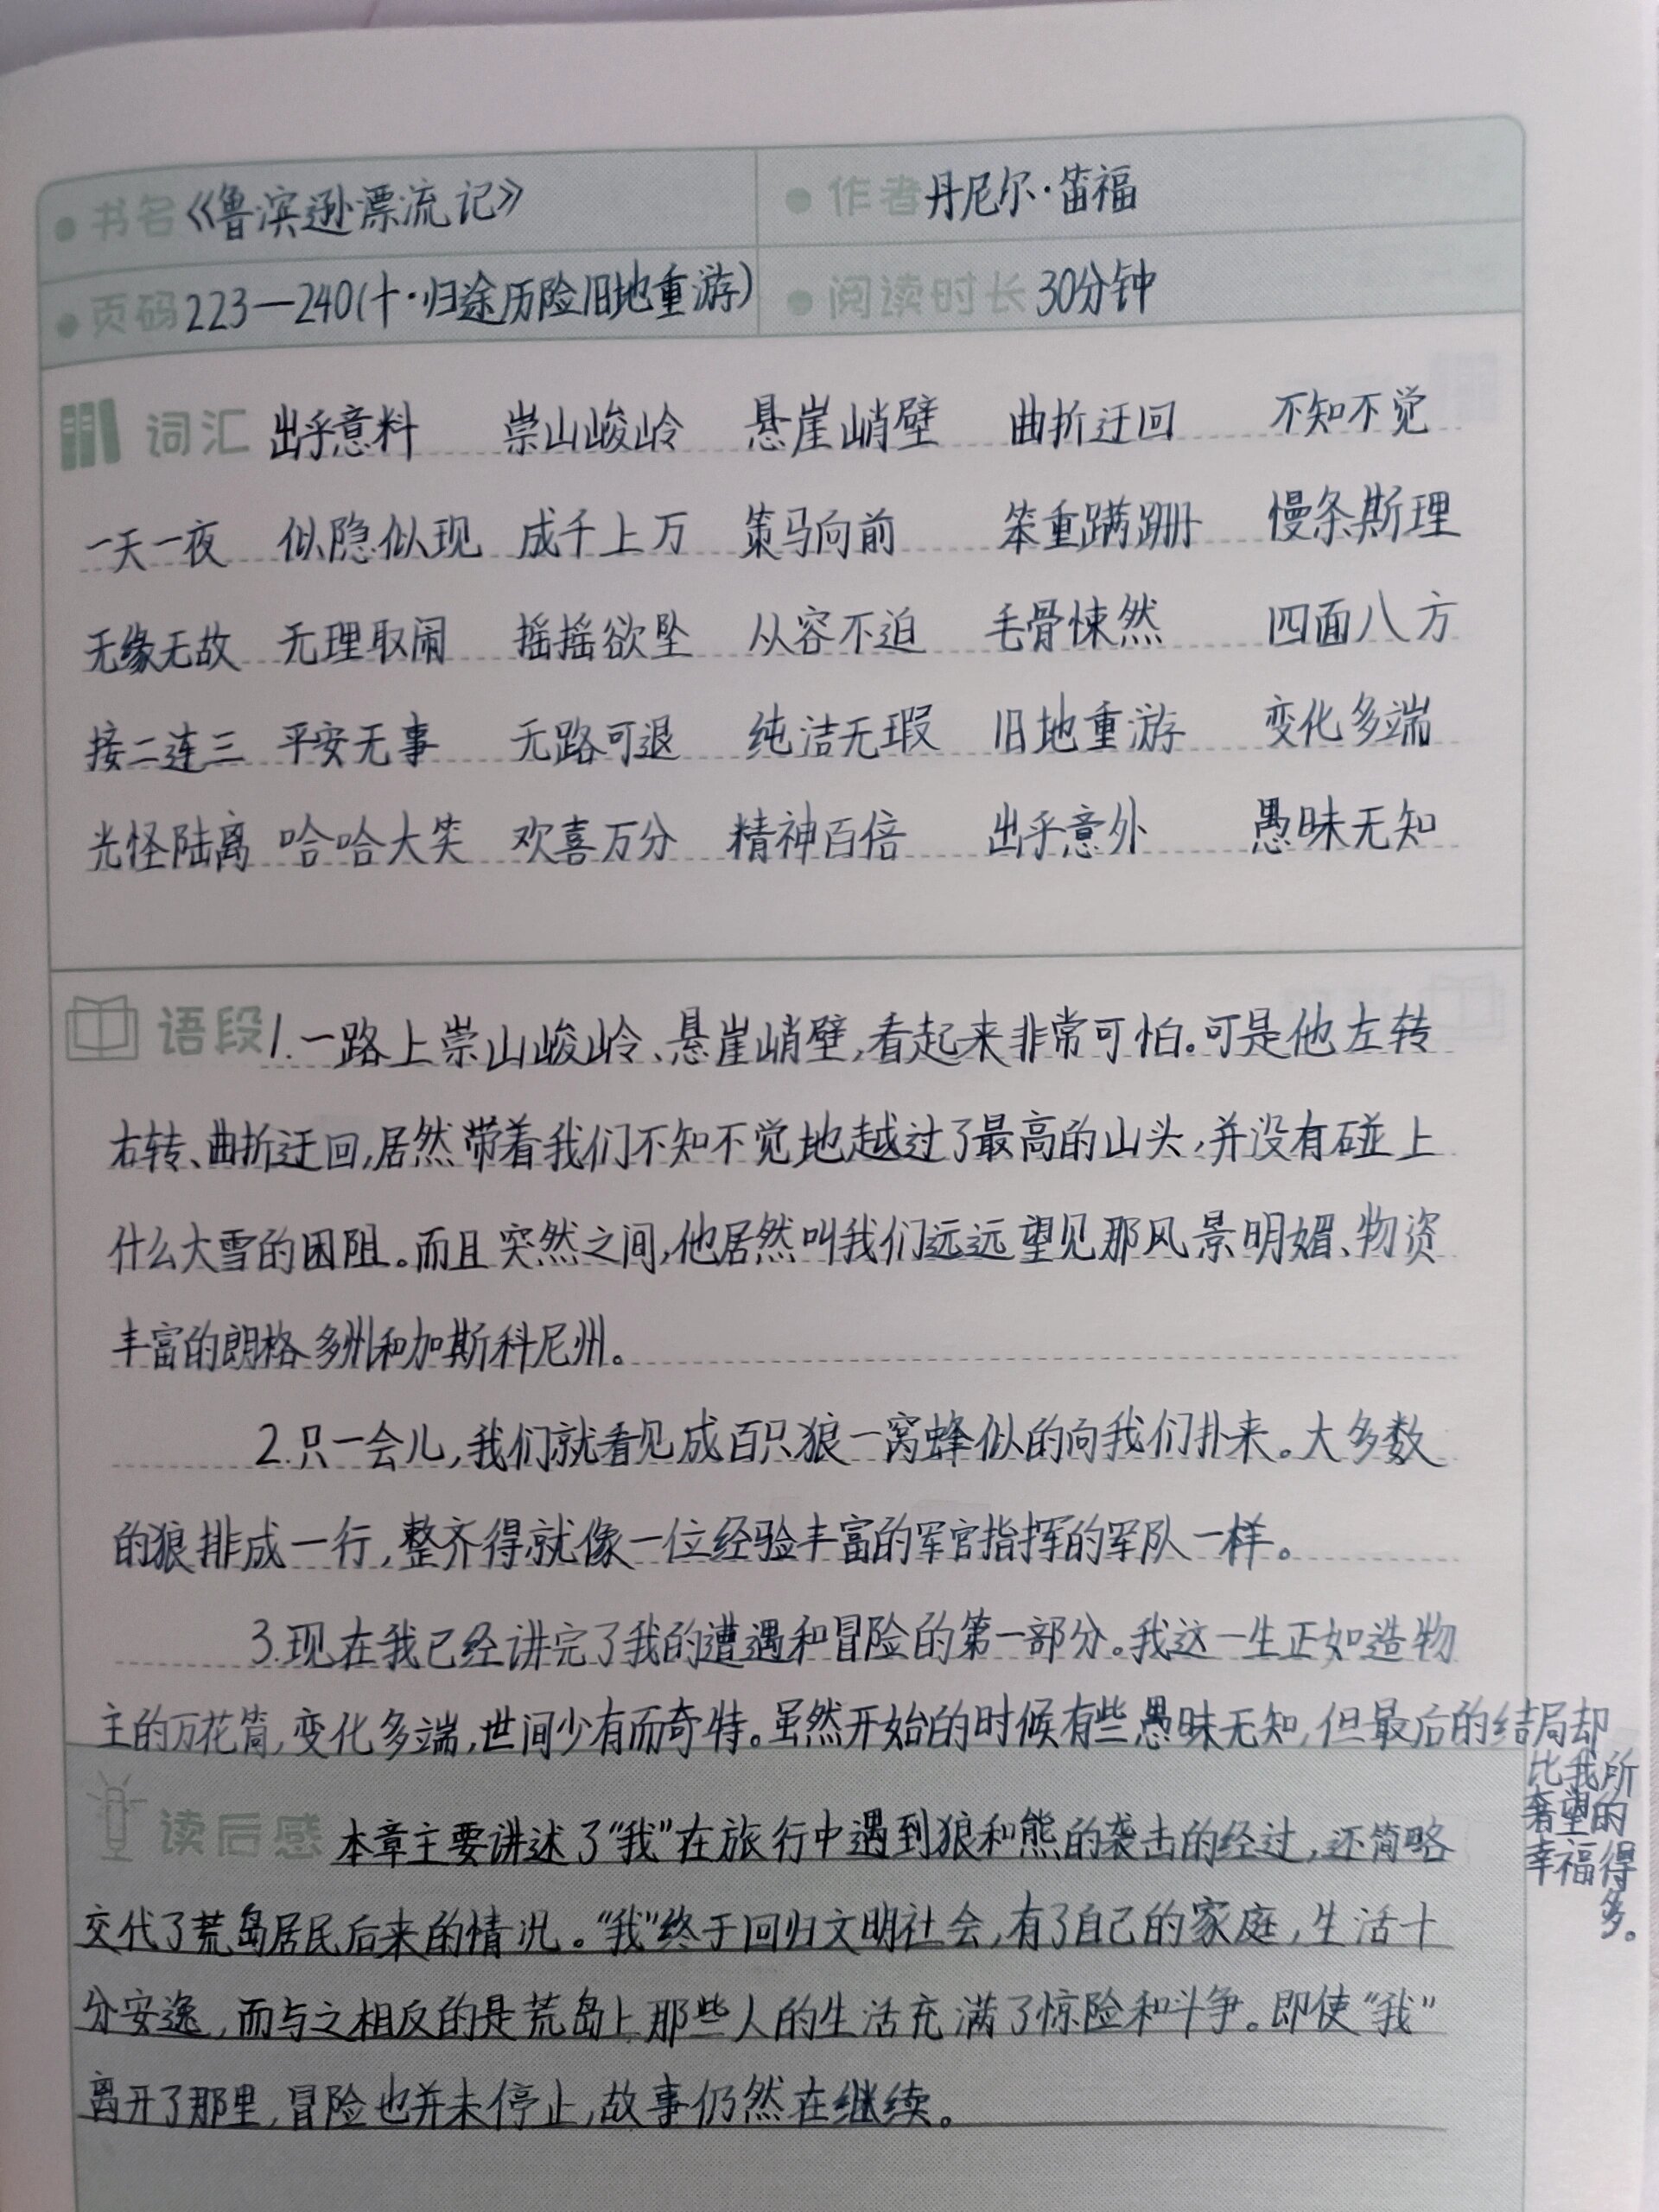 书名《鲁滨逊漂流记》 作者 丹尼尔·笛福
页码 223—240(十·归途历险旧地重游) 阅读时长 30分钟
词汇 出乎意料 崇山峻岭 悬崖峭壁 曲折迂回 不知不觉
一天一夜 似隐似现 成千上万 策马向前 笨重蹒跚 慢条斯理
无缘无故 无理取闹 摇摇欲坠 从容不迫 毛骨悚然 四面八方
接二连三 平安无事 无路可退 纯洁无瑕 旧地重游 变化多端
光怪陆离 哈哈大笑 欢喜万分 精神百倍 出乎意外 愚昧无知
语段 1.一路上崇山峻岭、悬崖峭壁,看起来非常可怕。可是他左转
右转、曲折迂回,居然带着我们不知不觉地越过了最高的山头,并没有碰上
什么大雪的困阻。而且突然之间,他居然叫我们远远望见那风景明媚、物资
丰富的朗格多州和加斯科尼州。
2.只一会儿,我们就看见成百只狼一窝蜂似的向我们扑来。大多数
的狼排成一行,整齐得就像一位经验丰富的军官指挥的军队一样。
3.现在我已经讲完了我的遭遇和冒险的第一部分。我这一生正如造物
主的万花筒,变化多端,世间少有而奇特。虽然开始的时候有些愚昧无知,但最后的结局却
比我所
奢望的
幸福得
多。
读后感 本章主要讲述了“我”在旅行中遇到狼和熊的袭击的经过,还简略
交代了荒岛居民后来的情况。“我”终于回归文明社会,有了自己的家庭,生活十
分安逸,而与之相反的是荒岛上那些人的生活充满了惊险和斗争。即使“我”
离开了那里,冒险也并未停止,故事仍然在继续。